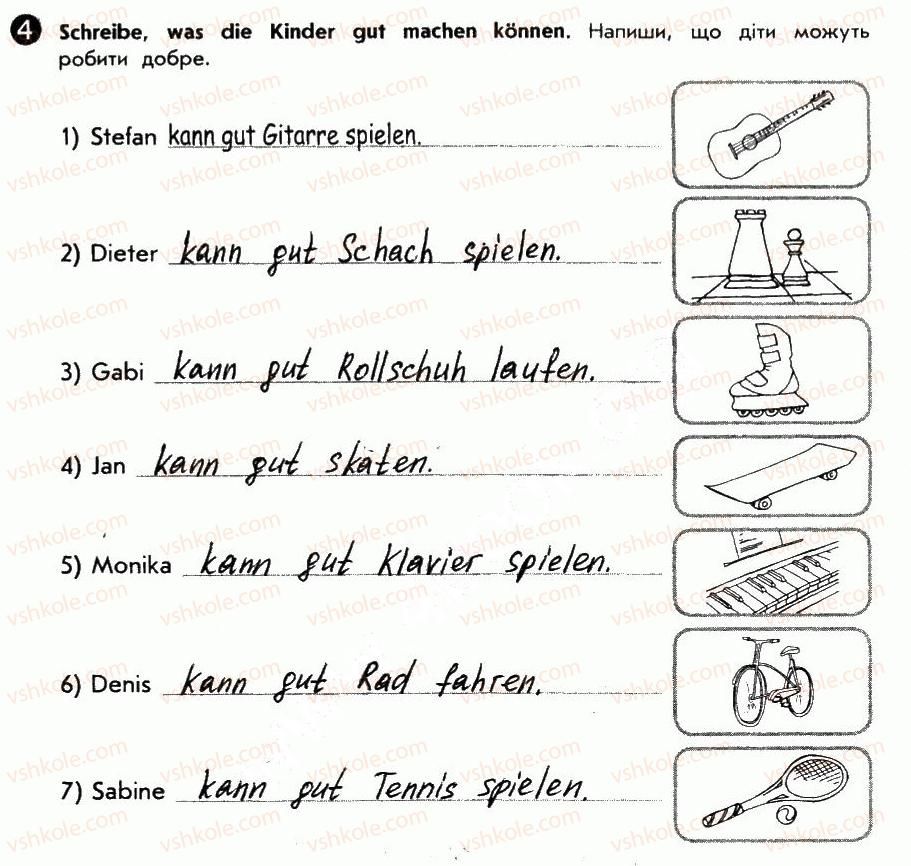 4 Schreibe, was die Kinder gut machen können. Напиши, що діти можуть
робити добре.
1) Stefan kann gut Gitarre spielen.
2) Dieter kann gut Schach spielen.
3) Gabi kann gut Rollschuh laufen.
4) Jan kann gut skaten.
5) Monika kann gut Klavier spielen.
6) Denis kann gut Rad fahren.
7) Sabine kann gut Tennis spielen.
vshkole.com